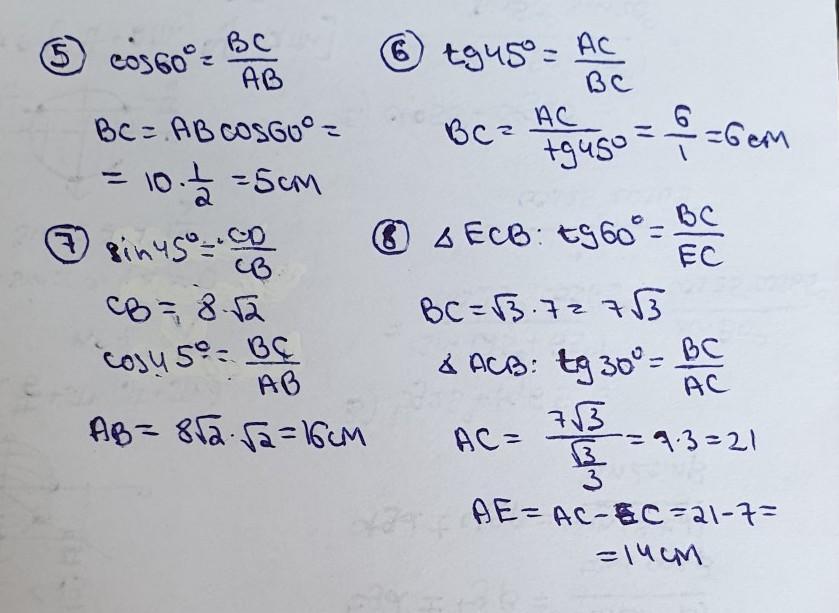 ⑤ cos60° = BC/AB
BC = AB cos60° =
= 10 · 1/2 = 5 cm
⑥ tg45° = AC/BC
BC = AC/tg45° = 6/1 = 6 cm
⑦ sin45° = CD/CB
CB = 8 · √2
cos45° = BC/AB
AB = 8√2 · √2 = 16 cm
⑧ △ ECB: tg60° = BC/EC
BC = √3 · 7 = 7√3
△ ACB: tg30° = BC/AC
AC = 7√3/(√3/3) = 7 · 3 = 21
AE = AC - EC = 21 - 7 =
= 14 cm